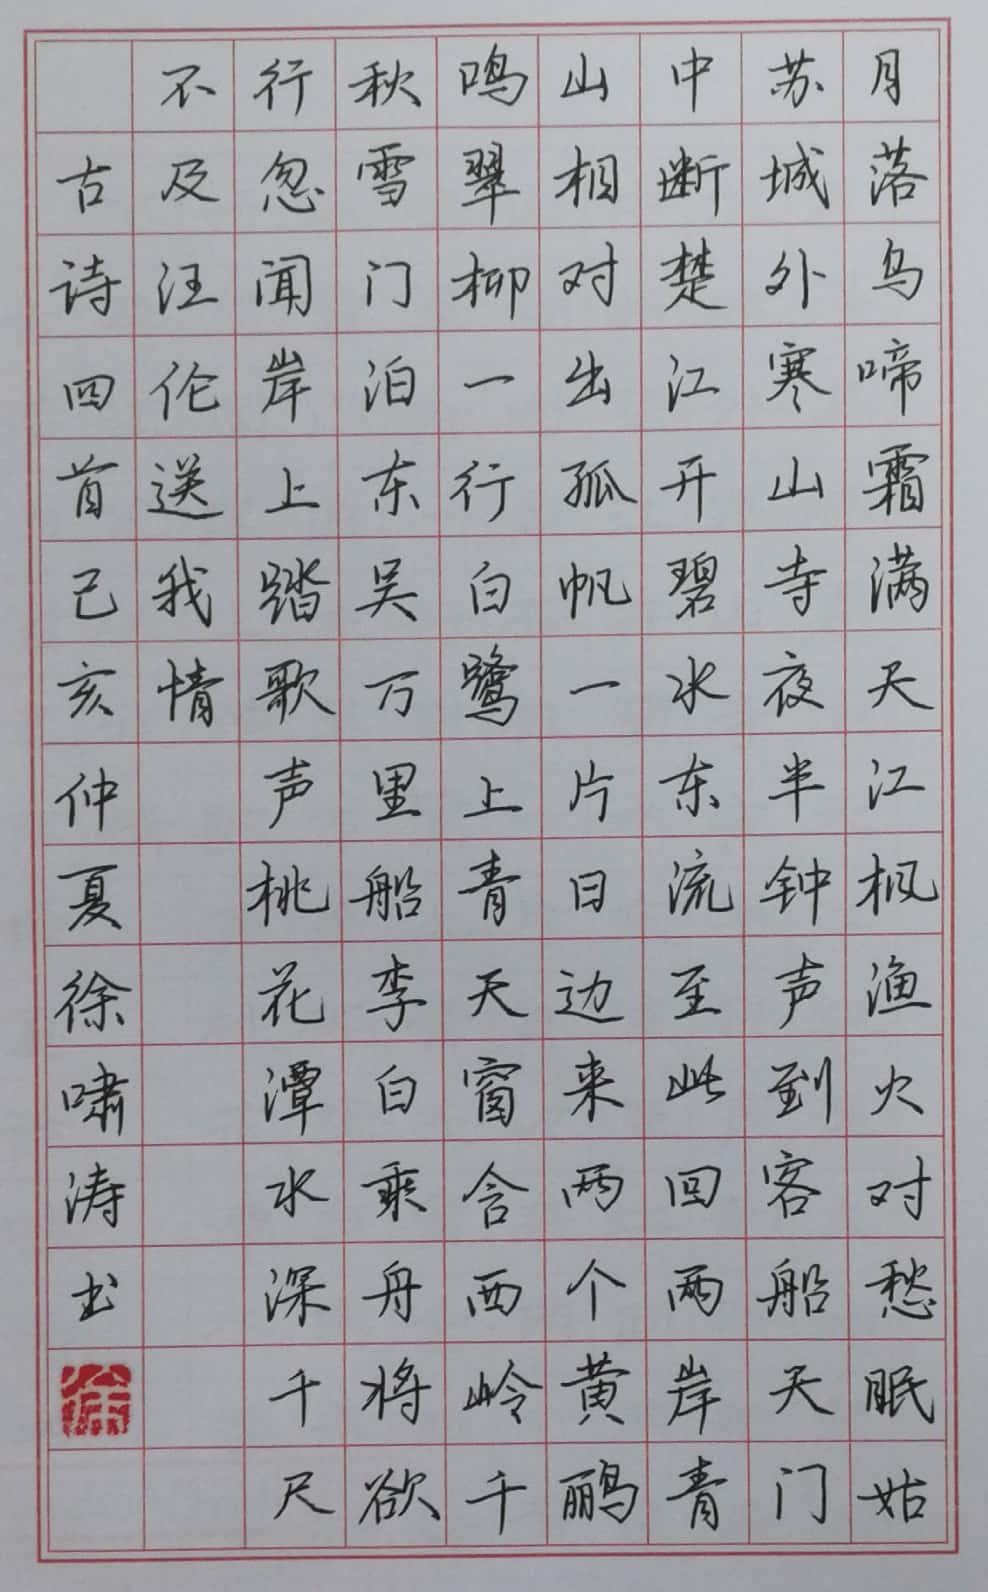 月落乌啼霜满天江枫渔火对愁眠姑
苏城外寒山寺夜半钟声到客船天门
中断楚江开碧水东流至此回两岸青
山相对出孤帆一片日边来两个黄鹂
鸣翠柳一行白鹭上青天窗含西岭千
秋雪门泊东吴万里船李白乘舟将欲
行忽闻岸上踏歌声桃花潭水深千尺
不及汪伦送我情
古诗四首己亥仲夏徐啸涛书